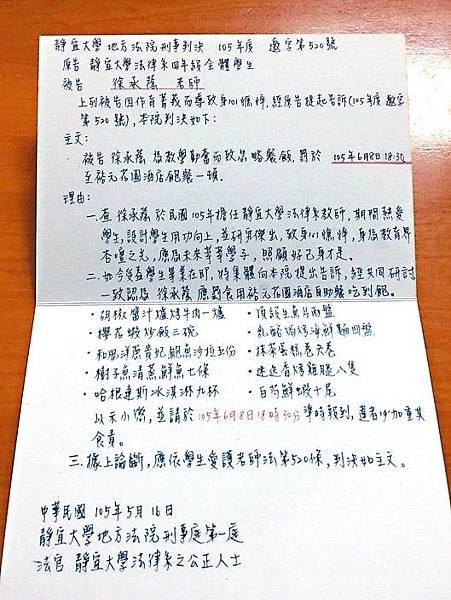 靜宜大學地方法院刑事判決 105年度 邀字第520號
原告 靜宜大學法律系四年級全體學生
被告 徐承蔭 老師
上列被告因作育菁莪而導致身101條棒,經原告提起告訴(105年度邀字
第520號),本院判決如下:
主文:
被告徐承蔭為教學勤奮而致忽略餐飯,罰於 105年6月8日18:30
至裕元花園酒店飽餐一頓。
理由:
一、查 徐承蔭於民國105年擔任靜宜大學法律系教師,期間熱愛
學生,設計學生用功向上,並研究傑出,致身101條棒,身為教育界
杏壇之光,應為未來莘莘學子,照顧好己身才是。
二、如今後與學生畢業在即,特集體向本院提出告訴,經共同研討
一致認為 徐承蔭應罰食用裕元花園酒店自助餐吃到飽。
・胡椒醬汁爐烤牛肉一爐 ・頂級生魚片兩盤
・櫻花蝦炒飯三碗 ・乳酪焗烤海鮮麵四盤
・和風洋蔥貴妃鮑魚沙拉五份 ・抹茶蛋糕卷六卷
・樹子魚清蒸鮮魚七條 ・迷迭香烤雞腿八隻
・哈根達斯冰淇淋九杯 ・白灼鮮蝦十尾
以示小懲,並請於105年6月8日18時30分準時報到,違者得加重其
食責。
三、據上論斷,應依學生愛護老師法第520條,判決如主文。
中華民國 105年5月16日
靜宜大學地方法院刑事庭第一庭
法官 靜宜大學法律系之公正人士